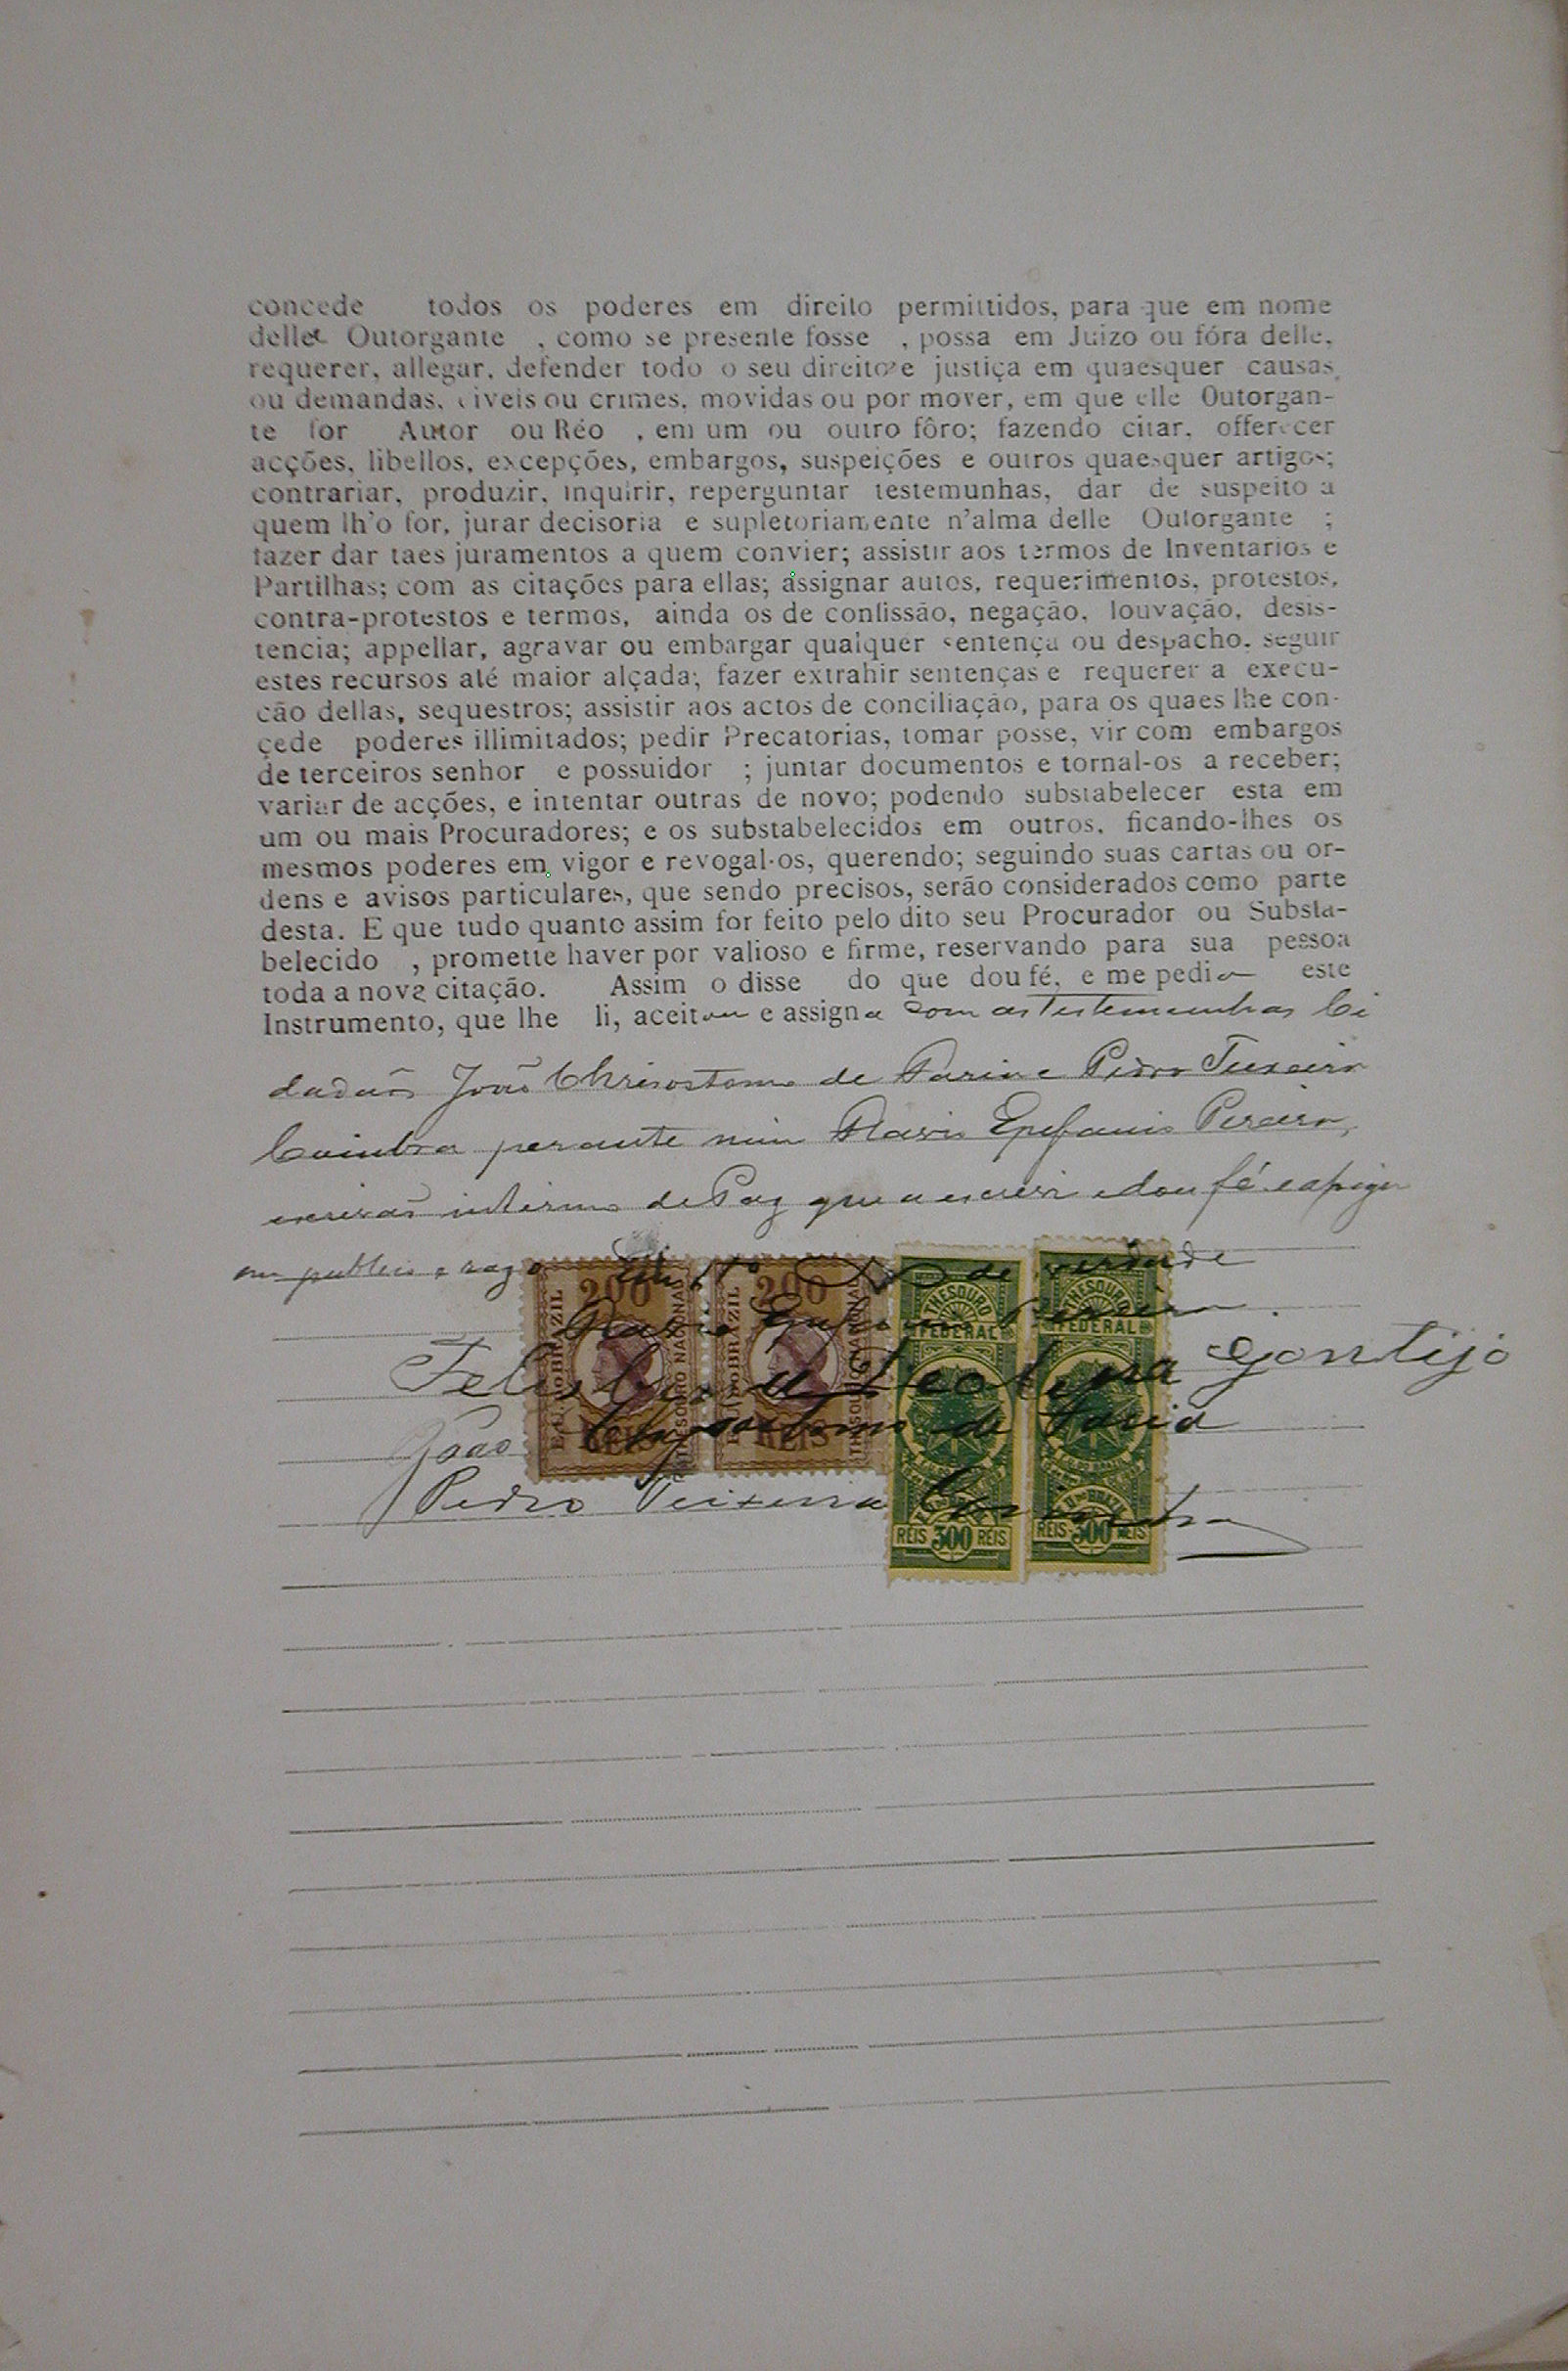 concede todos os poderes em direito permittidos, para que em nome
delle Outorgante , como se presente fosse , possa em Juizo ou fóra delle,
requerer, allegar, defender todo o seu direito e justiça em quaesquer causas
ou demandas, civeis ou crimes, movidas ou por mover, em que elle Outorgan-
te for Autor ou Réo , em um ou outro fôro; fazendo citar, offerecer
acções, libellos, excepções, embargos, suspeições e outros quaesquer artigos;
contrariar, produzir, inquirir, reperguntar testemunhas, dar de suspeito a
quem lh'o for, jurar decisoria e supletoriamente n'alma delle Outorgante ;
fazer dar taes juramentos a quem convier; assistir aos termos de Inventarios e
Partilhas; com as citações para ellas; assignar autos, requerimentos, protestos,
contra-protestos e termos, ainda os de confissão, negação, louvação, desis-
tencia; appellar, agravar ou embargar qualquer sentença ou despacho, seguir
estes recursos até maior alçada; fazer extrahir sentenças e requerer a execu-
cão dellas, sequestros; assistir aos actos de conciliação, para os quaes lhe con-
çede poderes illimitados; pedir Precatorias, tomar posse, vir com embargos
de terceiros senhor e possuidor ; juntar documentos e tornal-os a receber;
variar de acções, e intentar outras de novo; podendo substabelecer esta em
um ou mais Procuradores; e os substabelecidos em outros, ficando-lhes os
mesmos poderes em vigor e revogal-os, querendo; seguindo suas cartas ou or-
dens e avisos particulares, que sendo precisos, serão considerados como parte
desta. E que tudo quanto assim for feito pelo dito seu Procurador ou Substa-
belecido , promette haver por valioso e firme, reservando para sua pessoa
toda a nova citação. Assim o disse do que dou fé, e me pedio este
Instrumento, que lhe li, aceitou e assigna com as testemunhas Ci
dadãos João Chrisostomo de Faria e Pedro Teixeira
Coimbra perante mim Epefanio Pereira,
escrivão interino de Paz que a escrevi e dou fé e assigno
em publico e razo Em tº de verdade
Epefanio Pereira.
de Gontijo
João Chrysostomo de Faria
Pedro Teixeira Coimbra
200 E.U. DO BRAZIL THESOURO NACIONAL REIS
200 E.U. DO BRAZIL THESOURO NACIONAL REIS
THESOURO FEDERAL E.U. DO BRAZIL REIS 300 REIS
THESOURO FEDERAL E.U. DO BRAZIL REIS 300 REIS